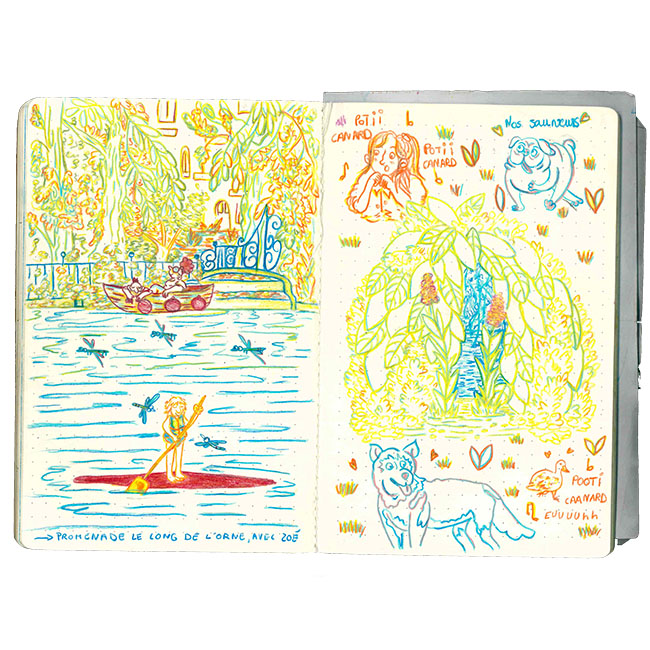 → PROMENADE LE LONG DE L'ORNE, AVEC ZOÉ
POTII
CANARD
POTII
CANARD
Nos sauveurs
POOTI
CAANARD
EUUUUhh